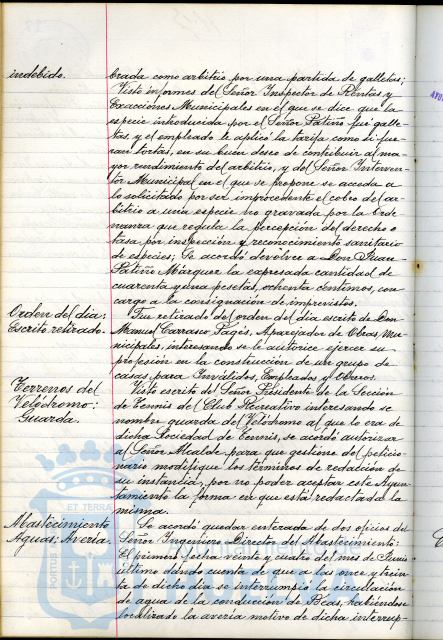 indebido.
brada como arbitrio por una partida de galletas;
Visto informes del Señor Inspector de Rentas y
Exacciones Municipales en el que se dice que la
especie introducida por el Señor Patiño fué galle-
tas y el empleado le aplicó la tarifa como si fue-
ran tortas, en su buen deseo de contribuir al ma-
yor rendimiento del arbitrio, y del Señor Interven-
tor Municipal en el que se propone se acceda a
lo solicitado por ser improcedente el cobro del ar-
bitrio a una especie no gravada por la Orde-
nanza que regula la percepción del derecho o
tasa por inspección y reconocimiento sanitario
de especies; Se acordó devolver a Don Juan
Patiño Márquez la expresada cantidad de
cuarenta y una pesetas, ochenta céntimos, con
cargo a la consignación de imprevistos.
Orden del dia:
Escrito retirado.
Fue retirado del orden del dia escrito de Don
Manuel Carrasco Pagés, Aparejador de Obras Mu-
nicipales, interesando se le autorice ejercer su
profesión en la construcción de un grupo de
casas para Inválidos, Empleados y Obreros.
Terrenos del
Velódromo:
Guarda.
Visto escrito del Señor Presidente de la Sección
de Tennis del Club Recreativo interesando se
nombre guarda del Velódromo al que lo era de
dicha Sociedad de Tennis, se acordó autorizar
al Señor Alcalde para que gestione del peticio-
nario modifique los términos de redacción de
su instancia, por no poder aceptar este Ayun-
tamiento la forma en que está redactada la
misma.
Abastecimiento
Aguas: Avería.
Se acordó quedar enterada de dos oficios del
Señor Ingeniero Director del Abastecimiento:
El primero fecha veinte y cuatro del mes de Junio
último dando cuenta de que a las once y trein-
ta de dicho dia se interrumpió la circulación
de agua de la conducción de Beas, habiéndose
localizado la avería motivo de dicha interrup-
ET TERRA
PORTUS